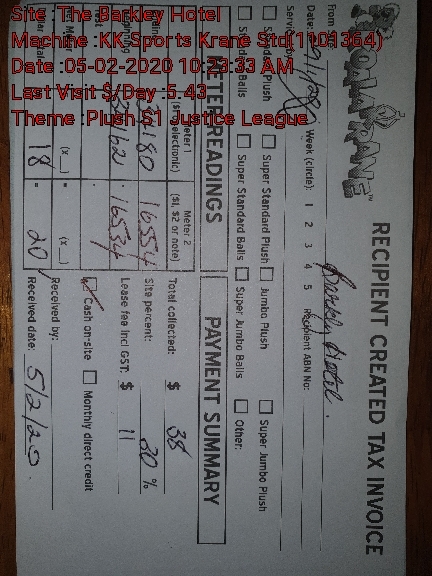 Site :The Barkley Hotel
Machine :KK Sports Krane Std(1101364)
Date :05-02-2020 10:23:33 AM
Last Visit $/Day :5.43
Theme :Plush $1 Justice League
KOALA KRANE
RECIPIENT CREATED TAX INVOICE
From
Barkly Hotel.
Date:
Week (circle): 1 2 3 4 5 Recipient ABN No:
Super Standard Plush Jumbo Plush Super Jumbo Plush
Balls Super Standard Balls Super Jumbo Balls Other:
METER READINGS
PAYMENT SUMMARY
Meter 1
($1 electronic)
Meter 2
($1, $2 or note)
180 16554
162 16534
18 20
Total collected: $ 38
Site percent: 30 %
Lease fee incl GST: $ 11
Cash on-site Monthly direct credit
Received by:
Received date: 5/2/20.